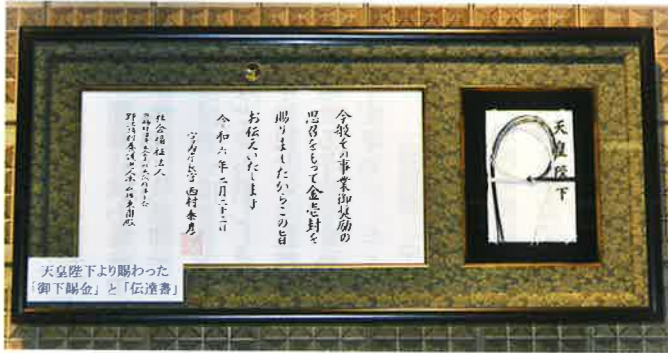 今般その事業御奨励の
思召をもって金壱封を
賜りましたからこの旨
お伝えいたします
令和六年二月二十三日
宮内庁長官 西村泰彦
社会福祉法人
天皇陛下
天皇陛下より賜わった
「御下賜金」と「伝達書」